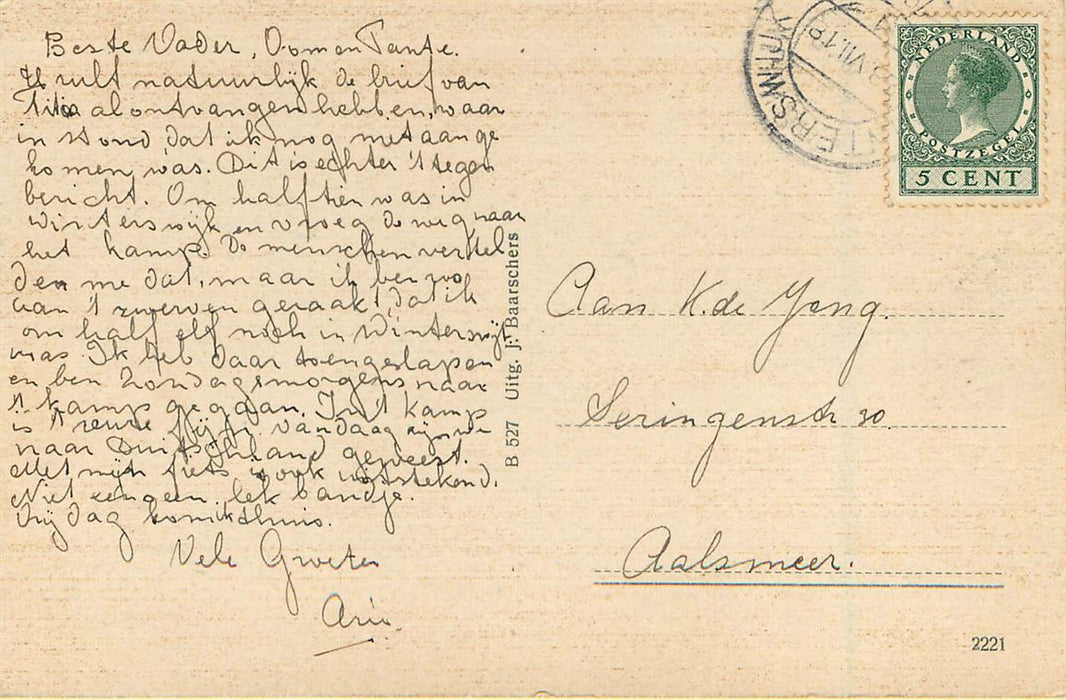 Beste Vader, Oom en Tante.
U zult natuurlijk de brief van
al ontvangen hebben, waar
in stond, dat ik nog niet aange
komen was. Dit is echter 't tegen
bericht. Om half tien was in
Winterswijk en vroeg de weg naar
het kamp. De menschen vertel
den me dat, maar ik ben zoo
aan 't zwerven geraakt, dat ik
om half elf noch in Winterswijk
was. Ik heb daar toen geslapen
en ben Zondagsmorgens naar
't kamp gegaan. In 't kamp
is 't reuze fijn, vandaag zijn we
naar Duitschland geweest.
Met mijn fiets is ook uitstekend.
Niet een geen lek bandje.
Vrijdag kom ik thuis.
Vele Groeten
Arie
B 527 Uitg. J. Baarschers
TERSWIJK
VII.18
NEDERLAND
POSTZEGEL
5 CENT
Aan K. de Jong.
Seringenstr 30.
Aalsmeer.
2221